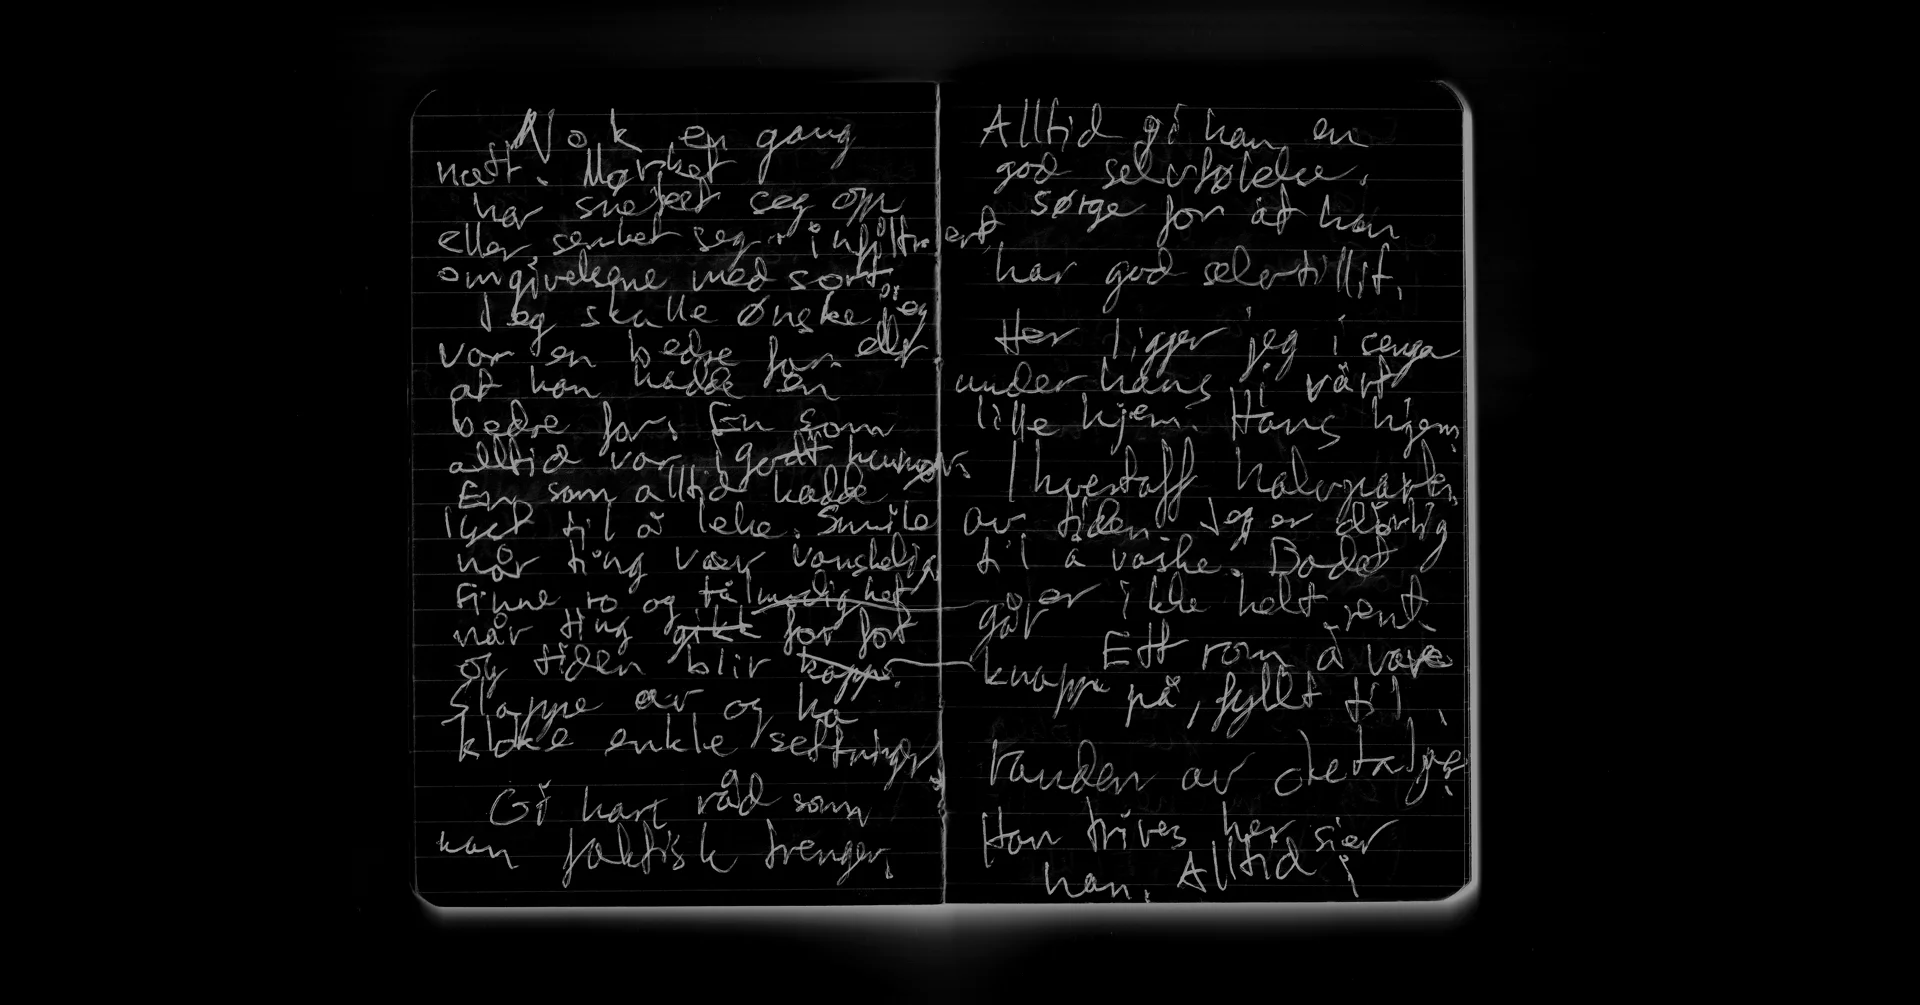 Nok en gang
natt. Mørket
har sneket seg opp
eller senket seg, infiltrert
omgivelsene med sort.
Jeg skulle ønske jeg
var en bedre far. eller
at han hadde en
bedre far. En som
alltid var i godt humør.
En som alltid hadde
lyst til å leke. Smile
når ting var vanskelig
Finne ro og tålmodighet
når ting går for fort
og tiden blir knapp
Slappe av og ha
kloke enkle setninger.
Gi ham råd som
han faktisk trenger.
Alltid gi han en
god selvfølelse.
Sørge for at han
har god selvtillit.
Her ligger jeg i senga
under hans i vårt
lille hjem. Hans hjem
I hvertfall halvparten
av tiden. Jeg er dårlig
til å vaske. Badet
er ikke helt rent
Ett rom å være
på, fyllt til
randen av
Han trives her sier
han. Alltid i